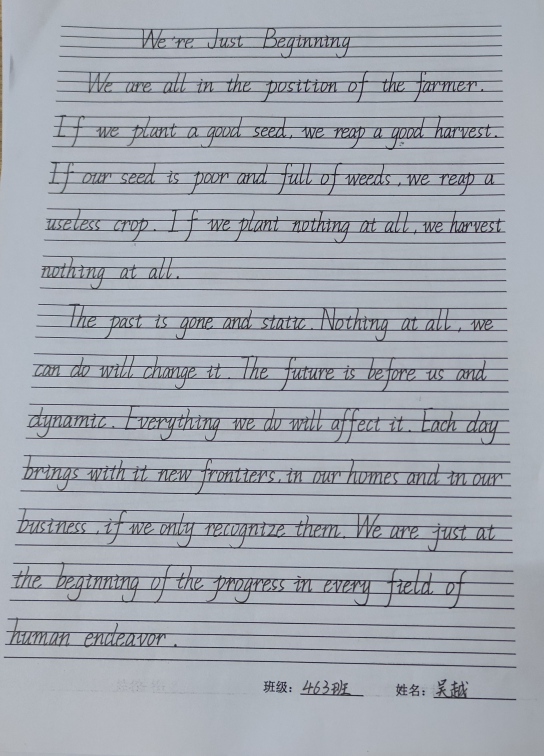 We're Just Beginning
We are all in the position of the farmer.
If we plant a good seed, we reap a good harvest.
If our seed is poor and full of weeds, we reap a
useless crop. If we plant nothing at all, we harvest
nothing at all.
The past is gone and static. Nothing at all, we
can do will change it. The future is before us and
dynamic. Everything we do will affect it. Each day
brings with it new frontiers, in our homes and in our
business, if we only recognize them. We are just at
the beginning of the progress in every field of
human endeavor.
班级: 463班 姓名: 吴越